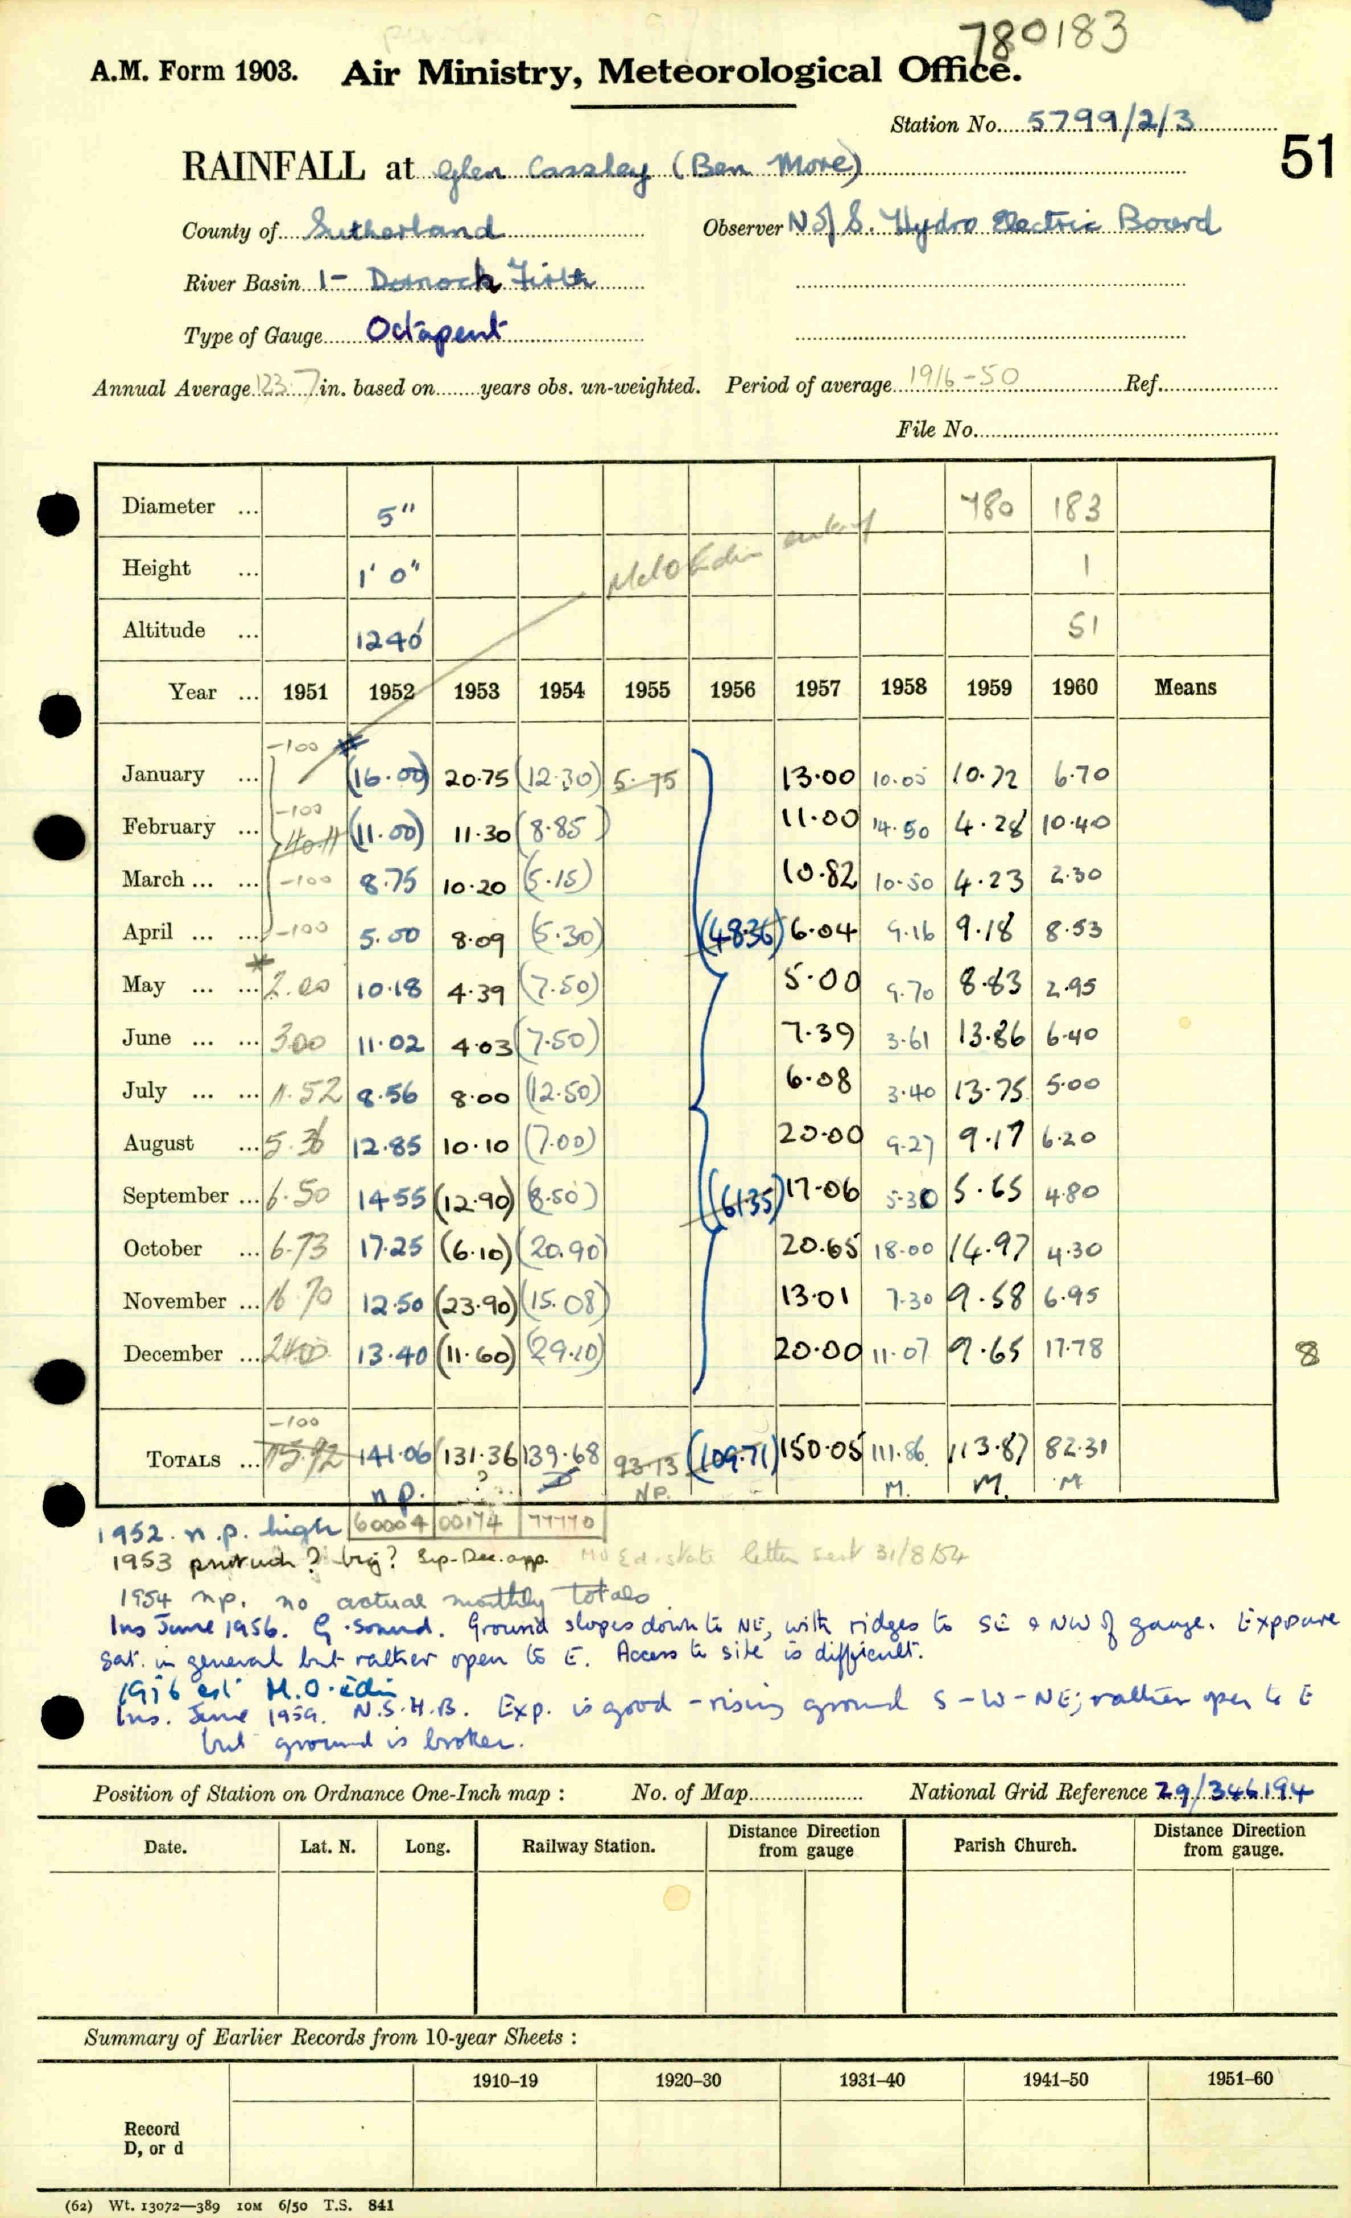 780183
A.M. Form 1903. Air Ministry, Meteorological Office.
Station No. 5799/2/3
51
RAINFALL at Glen Cassley (Ben More)
County of Sutherland Observer N of S. Hydro Electric Board
River Basin 1- Dornoch Firth
Type of Gauge Octapent
Annual Average 123.7 in. based on years obs. un-weighted. Period of average 1916-50 Ref.
File No.
Diameter ... 5" 780 183
Height ... 1' 0" 1
Altitude ... 1240' 51
Year ... 1951 1952 1953 1954 1955 1956 1957 1958 1959 1960 Means
January ... -100 (16.00) 20.75 (12.30) 5.75 13.00 10.05 10.72 6.70
February ... -100 (11.00) 11.30 (8.85) 11.00 14.50 4.28 10.40
March ... ... -100 8.75 10.20 (5.15) 10.82 10.50 4.23 2.30
April ... ... -100 5.00 8.09 (5.30) (48.36) 6.04 9.16 9.18 8.53
May ... ... 2.00 10.18 4.39 (7.50) 5.00 9.70 8.83 2.95
June ... ... 3.00 11.02 4.03 (7.50) 7.39 3.61 13.86 6.40
July ... ... 11.52 8.56 8.00 (12.50) 6.08 3.40 13.75 5.00
August ... 5.36 12.85 10.10 (7.00) 20.00 9.27 9.17 6.20
September ... 6.50 14.55 (12.90) (8.50) (61.35) 17.06 5.30 5.65 4.80
October ... 6.73 17.25 (6.10) (20.90) 20.65 18.00 14.97 4.30
November ... 16.70 12.50 (23.90) (15.08) 13.01 7.30 9.58 6.95
December ... 24.00 13.40 (11.60) (29.10) 20.00 11.07 9.65 17.78
8
-100
TOTALS ... 75.92 141.06 (131.36 139.68 93.13 (109.71) 150.05 111.86 113.87 82.31
n.p. ? NP. M. M. M
60004 00174 77770
1952. n.p. high
1953 ? big? Sep-Dec. app. letter sent 31/8/54
1954 n.p. no actual monthly totals
Ins June 1956. G. sound. Ground slopes down to NE, with ridges to SE & NW of gauge. Exposure
sat. in general but rather open to E. Access to site is difficult.
1956 est M.O. Edin
Ins. June 1959. N.S.H.B. Exp. is good - rising ground S-W-NE; rather open to E
but ground is broken.
Position of Station on Ordnance One-Inch map : No. of Map National Grid Reference 29/346194
Date. Lat. N. Long. Railway Station. Distance Direction from gauge Parish Church. Distance Direction from gauge.
Summary of Earlier Records from 10-year Sheets :
1910-19 1920-30 1931-40 1941-50 1951-60
Record
D, or d
(62) Wt. 13072—389 10M 6/50 T.S. 841